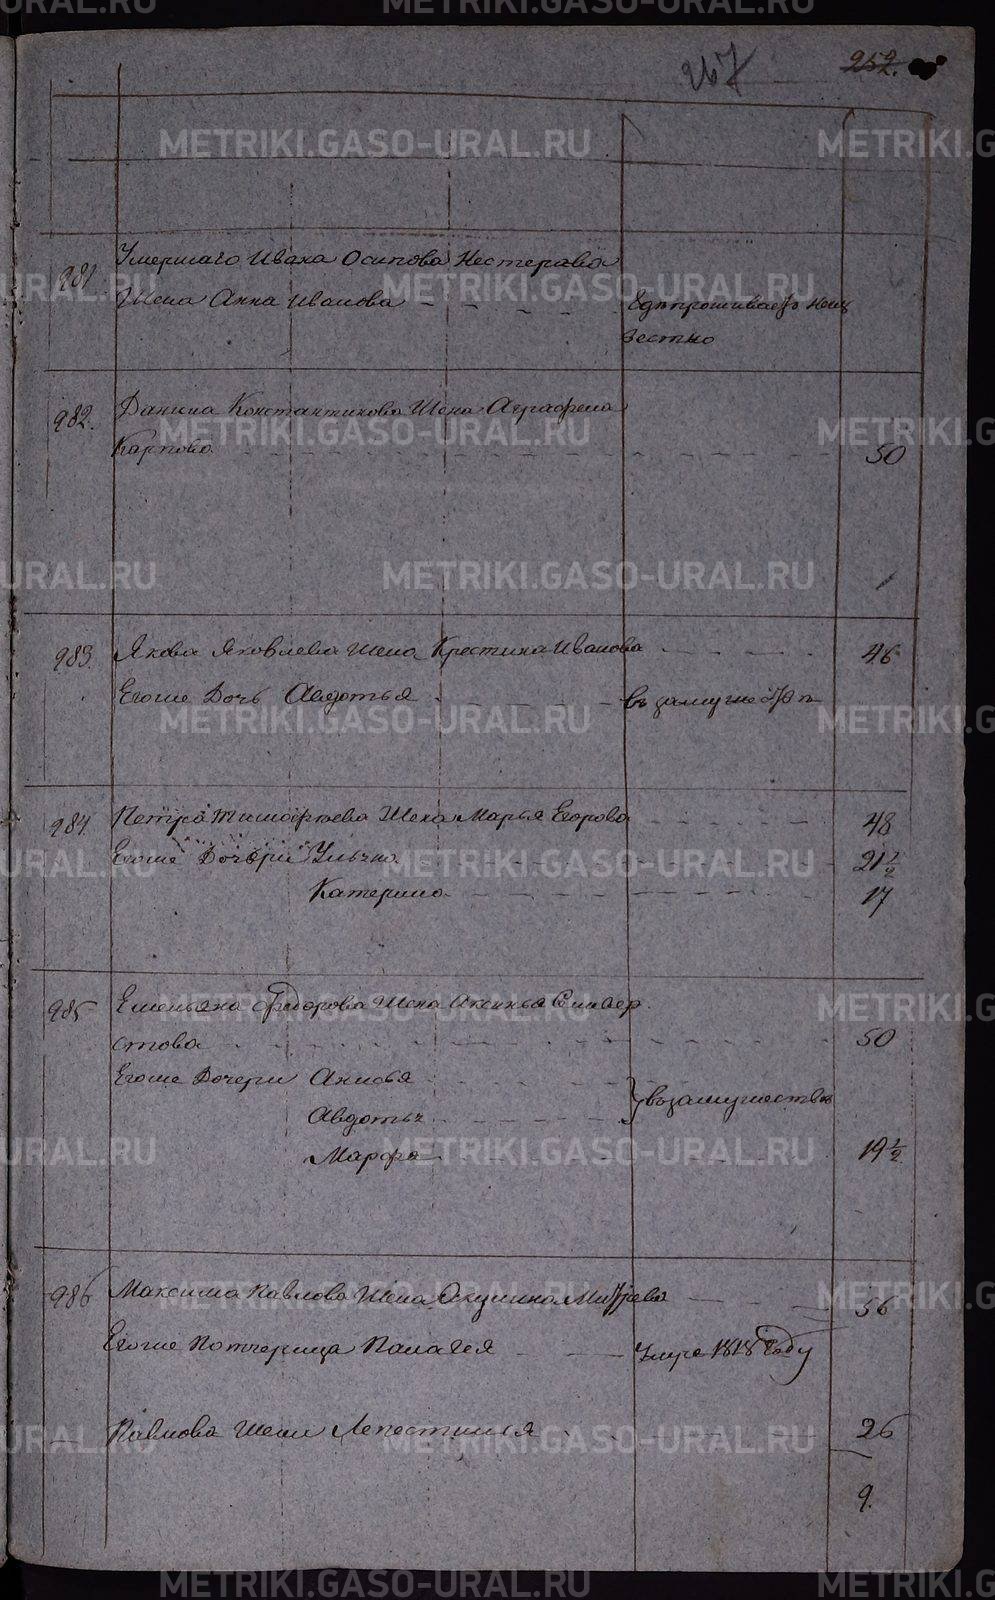 267
252.
981 Умершаго Ивана Осипова Нестерова
Жена Анна Иванова
Гдѣ проживаетъ неиз
вестно
982. Данила Константинова Жена Аграфена
Карпова 50
983. Якова Яковлева жена Крестина Иванова 46
Егоже Дочь Авдотья въ замужестве
984. Петра Тимофѣева Жена Марья Егорова 48
Егоже Дочери Улька 21 1/2
Катерина 17
985 Емельяна Федорова Жена Аксинья Сильвер
стова 50
Егоже Дочери Анисья
Авдотья
въ замужествѣ
Марфа 19 1/2
986 Максима Павлова Жена Акулина 56
Егоже Патчерица Палагея Умре 1818 Году
Павлова жена 26
9.
METRIKI.GASO-URAL.RU